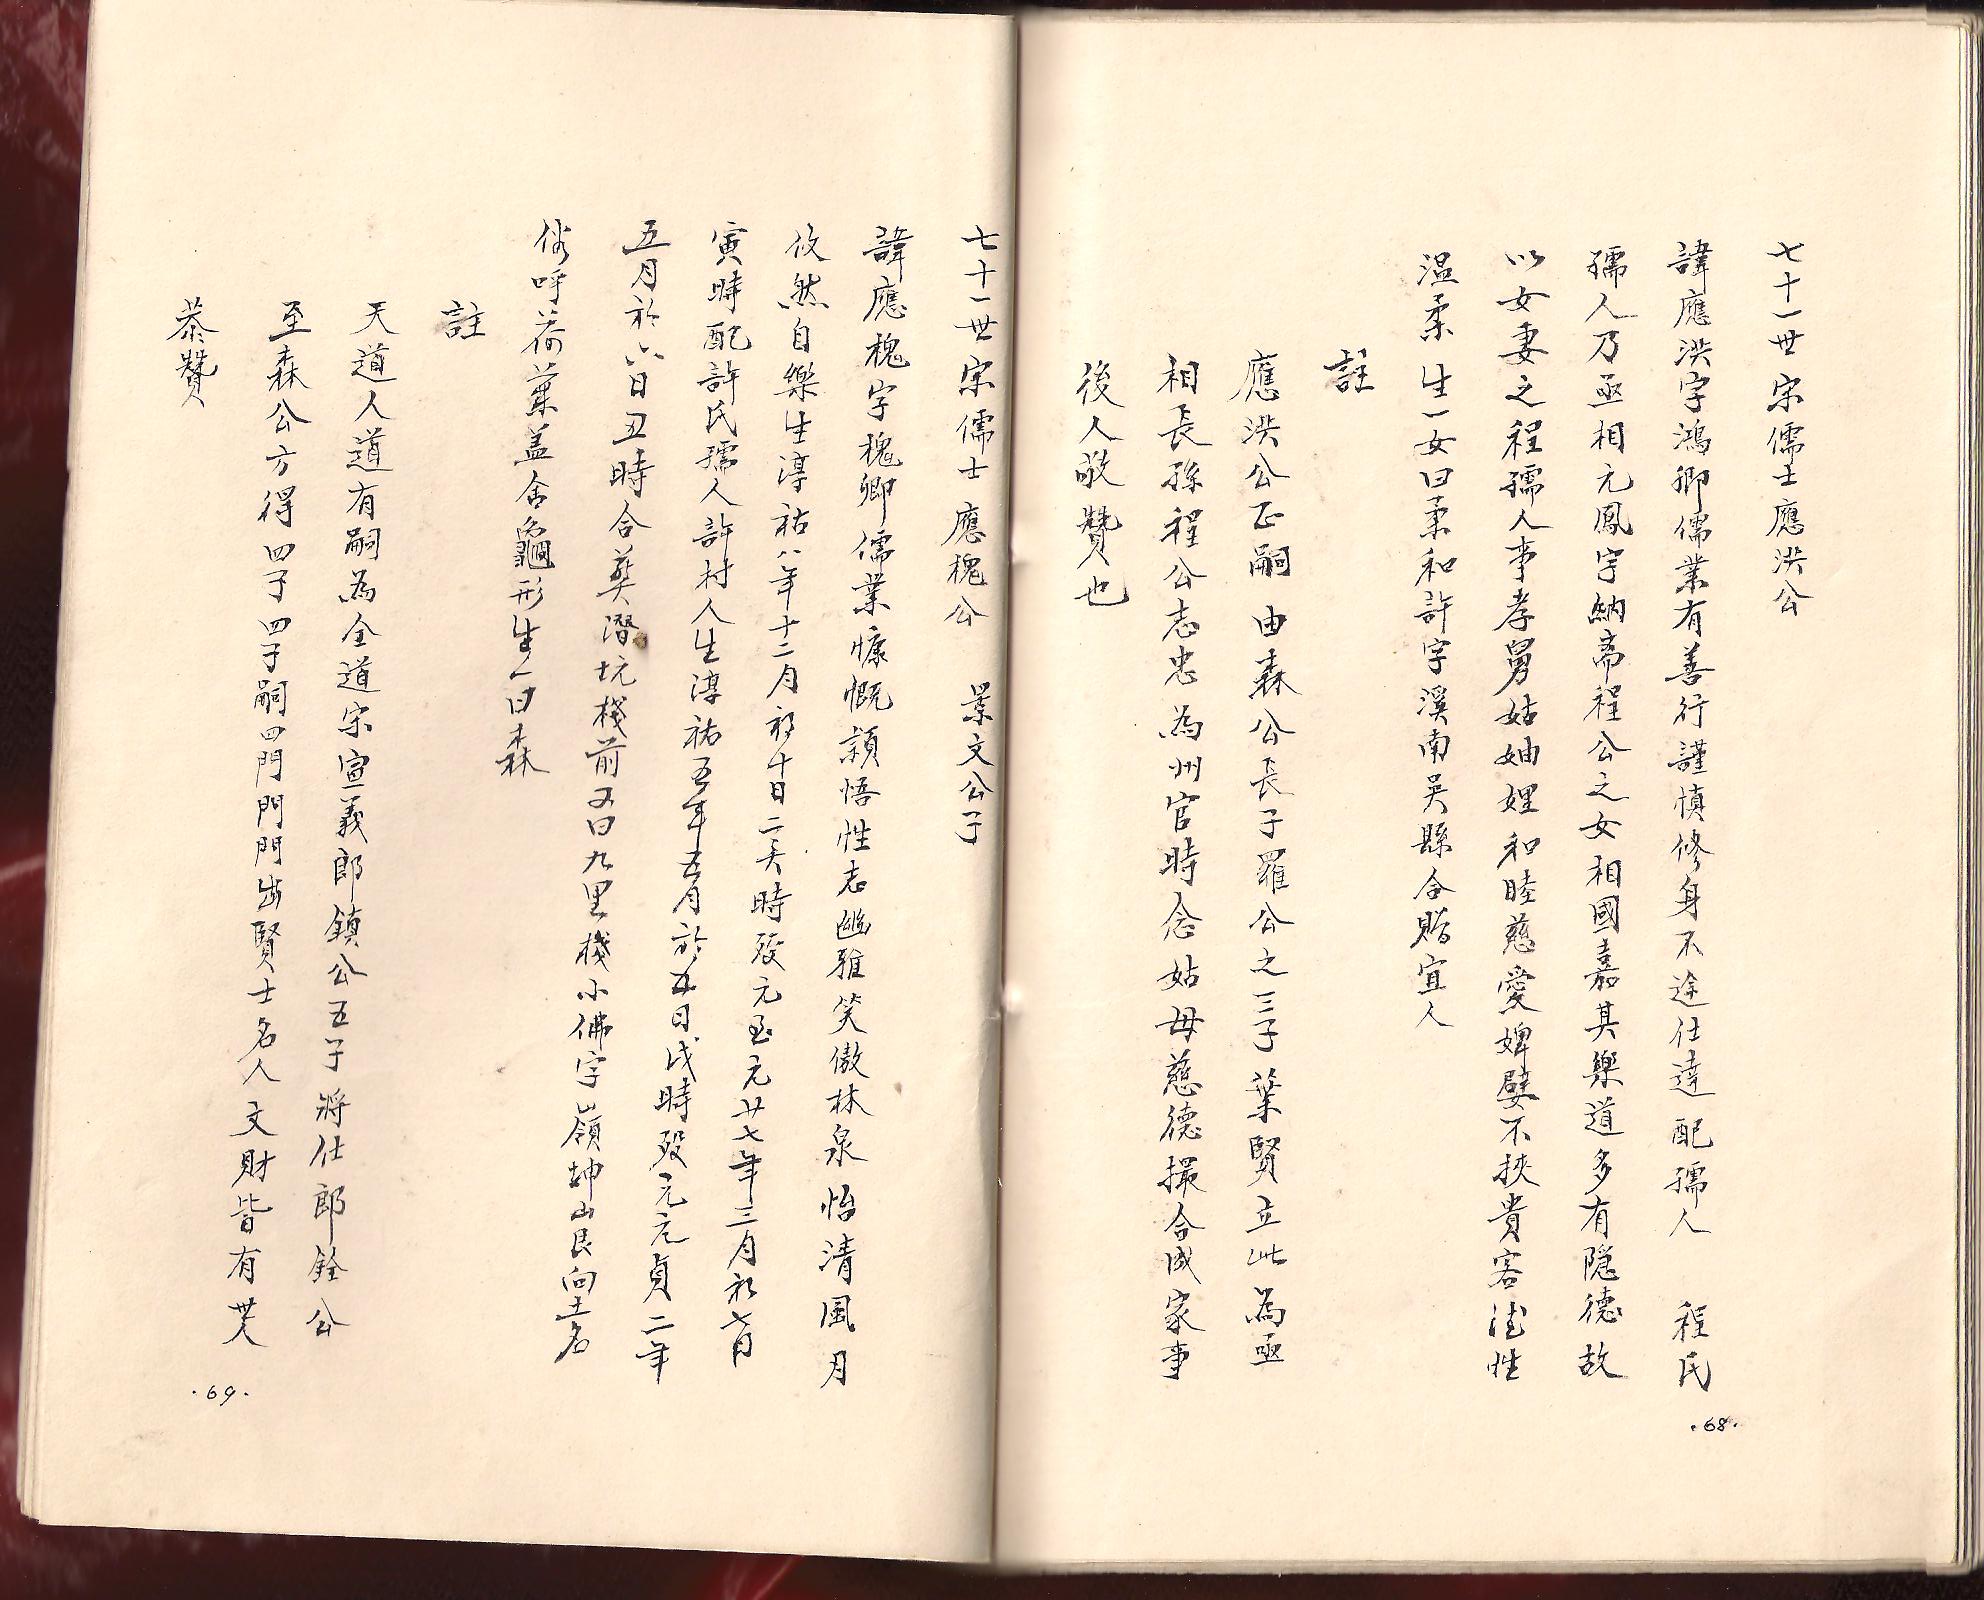 七十一世宋儒士應洪公
諱應洪字鴻卿儒業有善行謹慎修身不途仕達配孺人 程氏
孺人乃丞相元鳳字納斋程公之女相國嘉其樂道多有隐德故
以女妻之程孺人事孝舅姑妯娌和睦慈愛婢嬖不挾貴客德性
温柔生一女曰柔和許字溪南吴縣令贻宜人
註
應洪公正嗣由森公長子羅公之三子葉賢立此為亟
相長孫程公志忠為州官時念姑母慈德撮合成家事
後人敬贊也
·68·
七十一世宋儒士應槐公 景文公子
諱應槐字槐卿儒業慷慨潁悟性志幽雅笑傲林泉怡清風月
攸然自樂生淳祐八年十二月初十日二 時殁元至元廿七年三月初七日
寅時配許氏孺人許村人生淳祐五年五月於五日戌時殁元元貞二年
五月於六日丑時合葬潛坑棧前又曰九里棧小佛字嶺坤山艮向土名
俗呼荷葉盖金龜形生一曰森
註
天道人道有嗣為全道宋宣義郎鎮公五子將仕郎銓公
至森公方得四子四子嗣四門門門出賢士名人文財皆有
恭贊
·69·